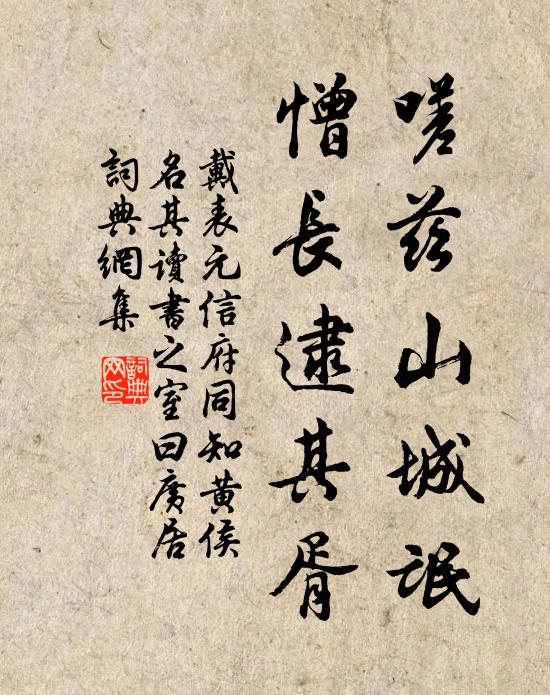 嗟茲山城氓
憎長逮其胥
戴表元信府同知黃侯
名其讀書之室曰廣居
詞典網集
詞典
网印